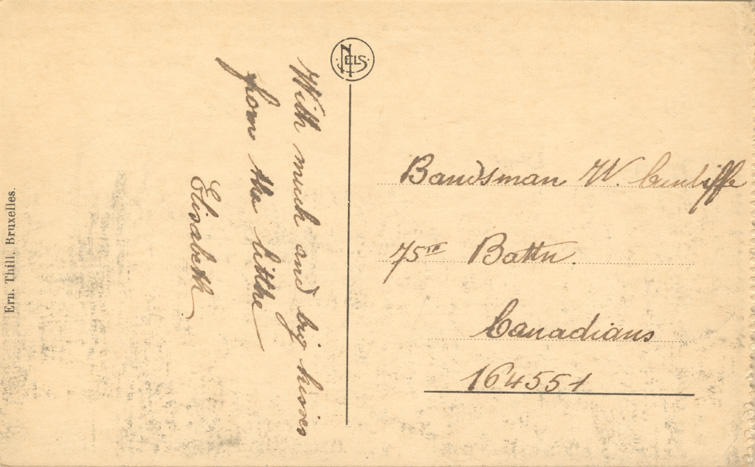 With much and big kisses
from the litthe
Elisabeth.
NELS
Bandsman W. Cunliffe
75TH Battn.
Canadians
164551
Ern. Thill, Bruxelles.